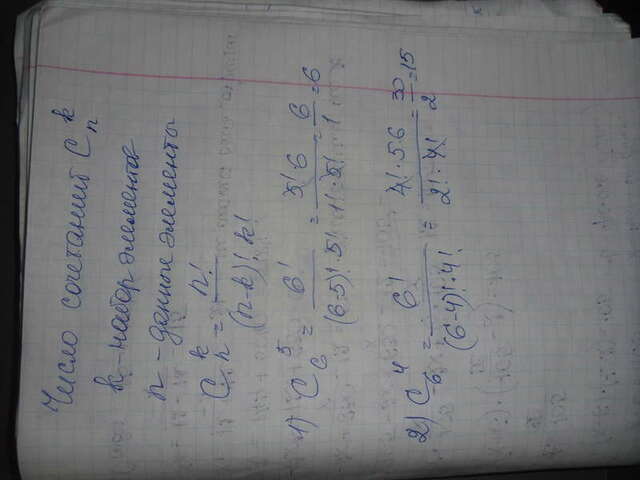 Число сочетаний C_n^k
k - набор элементов
n - данные элементы
C_n^k = n! / (n-k)! k!
1) C_6^5 = 6! / (6-5)! · 5! = 5! · 6 / 1! · 5! = 6 / 1 = 6
2) C_6^4 = 6! / (6-4)! · 4! = 4! · 5 6 / 2! · 4! = 30 / 2 = 15